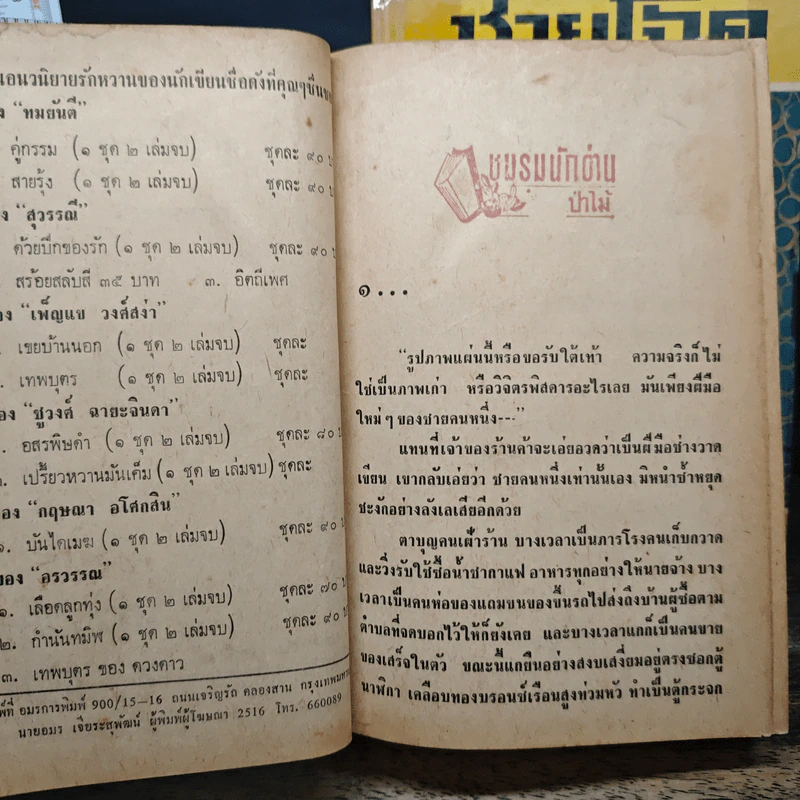 ชายโฉด
เอนวนิยายรักหวานของนักเขียนชื่อดังที่คุณๆชื่นช
ง "ทมยันตี"
คู่กรรม (๑ ชุด ๒ เล่มจบ) ชุดละ ๙๐ บ
สายรุ้ง (๑ ชุด ๒ เล่มจบ) ชุดละ ๙๐
ง "สุวรรณี"
ด้วยปีกของรัก (๑ ชุด ๒ เล่มจบ) ชุดละ ๙๐
สร้อยสลับสี ๓๕ บาท ๓. อิตถีเพศ
อง "เพ็ญแข วงศ์สง่า"
. เขยบ้านนอก (๑ ชุด ๒ เล่มจบ) ชุดละ
. เทพบุตร (๑ ชุด ๒ เล่มจบ) ชุดละ
อง "ชูวงศ์ ฉายะจินดา"
. อสรพิษดำ (๑ ชุด ๒ เล่มจบ) ชุดละ ๘๐
. เปรี้ยวหวานมันเค็ม (๑ ชุด ๒ เล่มจบ) ชุดละ
อง "กฤษณา อโศกสิน"
๑. บันไดเมฆ (๑ ชุด ๒ เล่มจบ) ชุดละ ๙๐
ของ "อรวรรณ"
๑. เลือดลูกทุ่ง (๑ ชุด ๒ เล่มจบ) ชุดละ ๗๐
๒. กำนันทมิพ (๑ ชุด ๒ เล่มจบ) ชุดละ ๙๐
๓. เทพบุตร ของ ดวงดาว
พ์ที่ อมรการพิมพ์ 900/15—16 ถนนเจริญรัถ คลองสาน กรุงเทพมหา
นายอมร เจียระสุพัฒน์ ผู้พิมพ์ผู้โฆษณา 2516 โทร. 660089
ชมรมนักอ่าน
ป่าไม้
๑...
"รูปภาพแผ่นนี้หรือขอรับใต้เท้า ความจริงก็ไม่
ใช่เป็นภาพเก่า หรือวิจิตรพิสดารอะไรเลย มันเพียงฝีมือ
ใหม่ๆ ของชายคนหนึ่ง---"
แทนที่เจ้าของร้านค้าจะเอ่ยอวดว่าเป็นฝีมือช่างวาด
เขียน เขากลับเอ่ยว่า ชายคนหนึ่งเท่านั้นเอง มิหนำซ้ำหยุด
ชะงักอย่างลังเลเสียอีกด้วย
ตาบุญคนเฝ้าร้าน บางเวลาเป็นภารโรงคนเก็บกวาด
และวิ่งรับใช้ซื้อน้ำชากาแฟ อาหารทุกอย่างให้นายจ้าง บาง
เวลาเป็นคนห่อของแถมขนของขึ้นรถไปส่งถึงบ้านผู้ซื้อตาม
ตำบลที่จดบอกไว้ให้ก็ยังเคย และบางเวลาแกก็เป็นคนขาย
ของเสร็จในตัว ขณะนี้แกยืนอย่างสงบเสงี่ยมอยู่ตรงซอกตู้
นาฬิกา เคลือบทองบรอนซ์เรือนสูงท่วมหัว ทำเป็นตู้กระจก